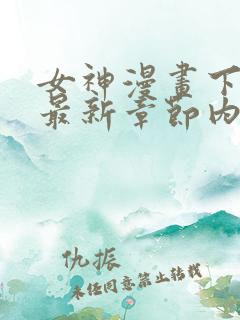 女神漫畫下
最新章節內
仇振
未經同意禁止轉載